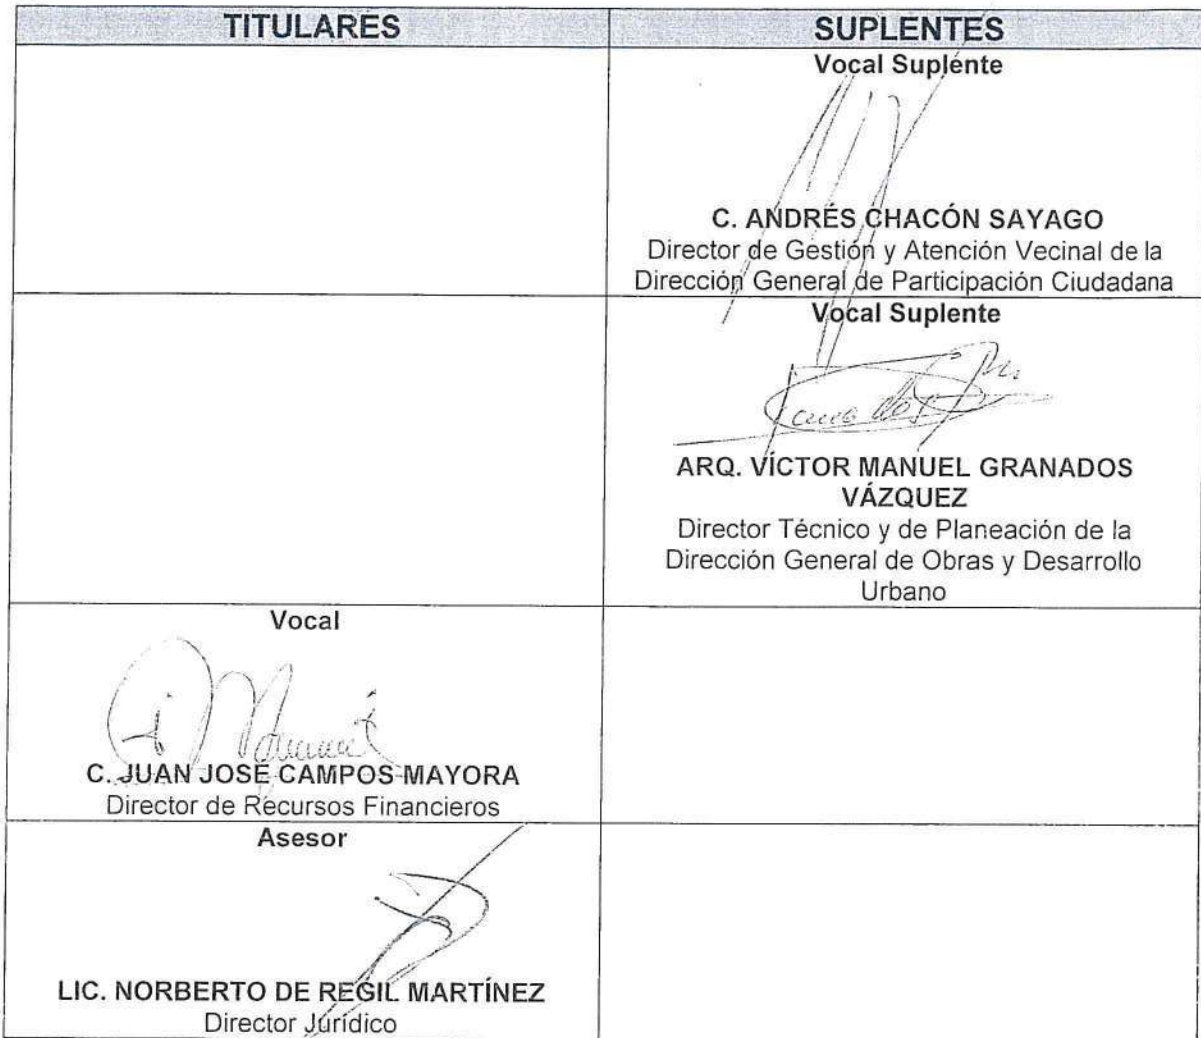 TITULARES
SUPLENTES
Vocal Suplente
C. ANDRÉS CHACÓN SAYAGO
Director de Gestión y Atención Vecinal de la
Dirección General de Participación Ciudadana
Vocal Suplente
ARQ. VÍCTOR MANUEL GRANADOS
VÁZQUEZ
Director Técnico y de Planeación de la
Dirección General de Obras y Desarrollo
Urbano
Vocal
C. JUAN JOSÉ CAMPOS MAYORA
Director de Recursos Financieros
Asesor
LIC. NORBERTO DE REGIL MARTÍNEZ
Director Jurídico